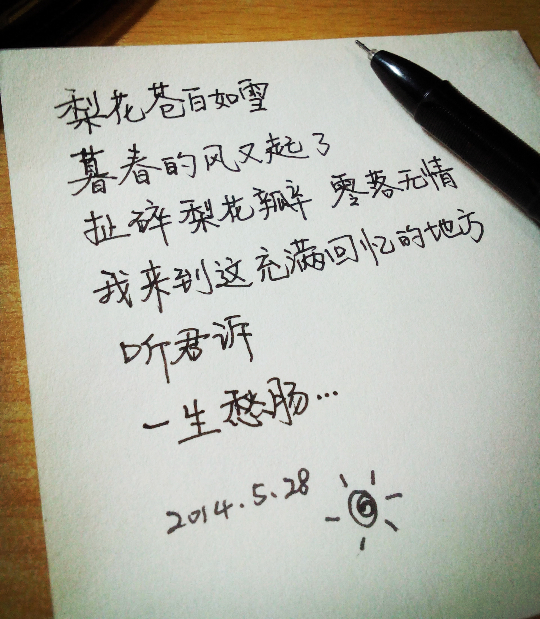 梨花苍白如雪
暮春的风又起了
扯碎梨花瓣 零落无情
我来到这充满回忆的地方
听君诉
一生愁肠…
2014.5.28